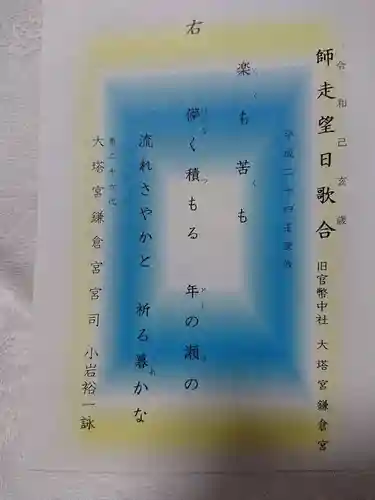 令和己亥歳
師走望日歌合
旧官幣中社 大塔宮鎌倉宮
右
楽も 苦も
儚く積もる 年の瀬の
流れさやかと 祈る暮かな
大塔宮鎌倉宮宮司 小岩裕一詠